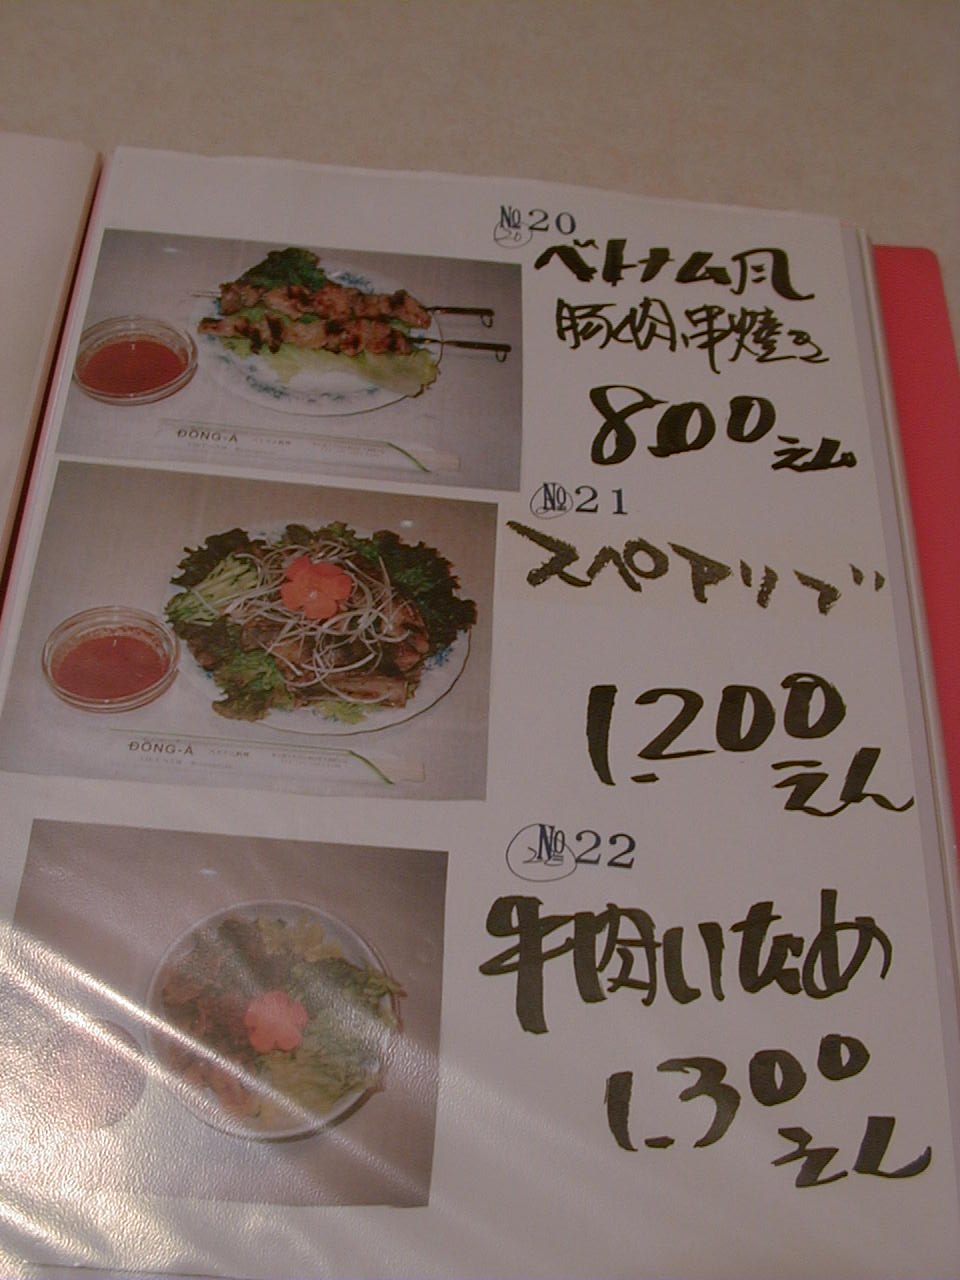 №20
20
ベトナム風
豚肉串焼き
800えん
DÔNG-Á
№21
スペアリブ
1,200
えん
DÔNG-Á
№22
牛肉いため
1,300
えん